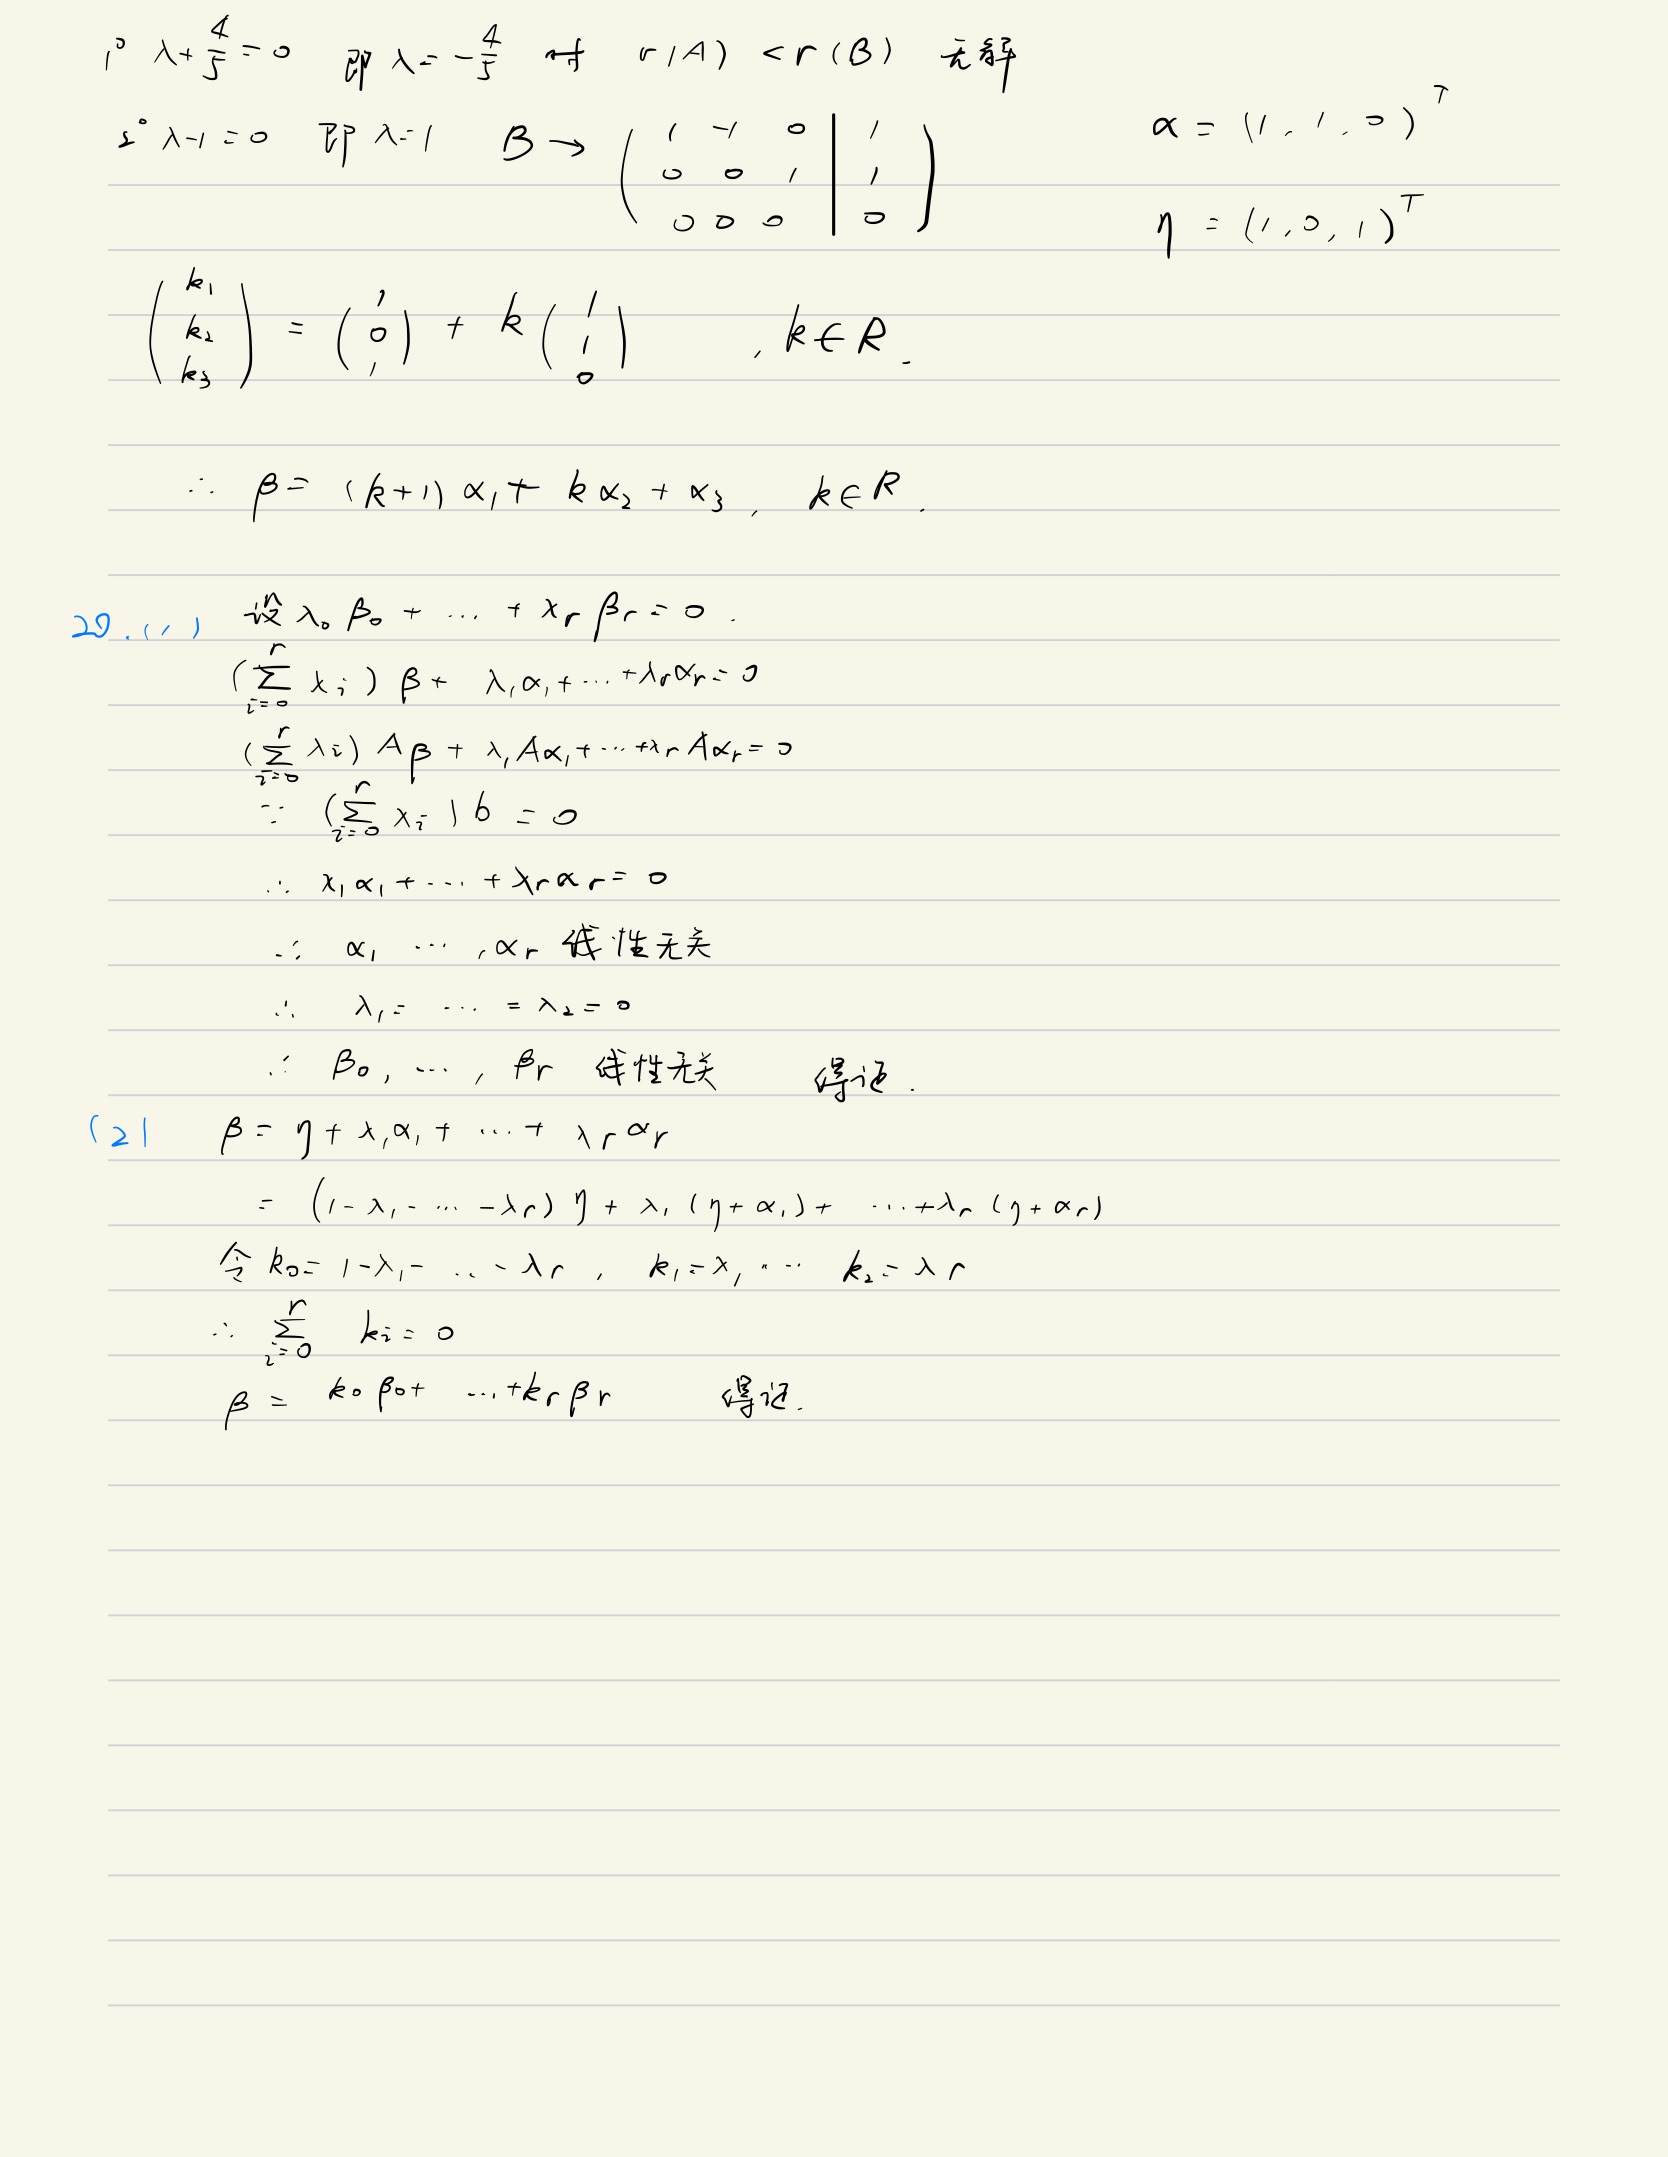 1° λ+4/5=0 即 λ=-4/5 时 r(A) <r(B) 无解
2° λ-1=0 即 λ=1 B→ ( 1 -1 0 | 1
0 0 1 | 1
0 0 0 | 0 )
α = (1, 1, 0)^T
η = (1, 0, 1)^T
(k₁ k₂ k₃) = (1 0 1) + k (1 1 0) , k∈R.
∴ β= (k+1)α₁+ kα₂ + α₃, k∈R.
20.(1) 设 λ₀β₀ + ... + λᵣβᵣ = 0.
(∑_{i=0}^{r} λᵢ) β + λ₁α₁+...+λᵣαᵣ=0
(∑_{i=0}^{r} λᵢ) Aβ + λ₁Aα₁+...+λᵣAαᵣ=0
∵ (∑_{i=0}^{r} λᵢ) b = 0
∴ λ₁α₁+...+λᵣαᵣ= 0
∴ α₁ ... ,αᵣ 线性无关
∴ λ₁= ... =λ₂=0
∴ β₀, ..., βᵣ 线性无关 得证.
(2) β= η+λ₁α₁+ ...+ λᵣαᵣ
= (1-λ₁-...-λᵣ) η + λ₁(η+α₁)+ ...+λᵣ(η+αᵣ)
令 k₀= 1-λ₁- ... -λᵣ, k₁=λ₁ ... k₂=λᵣ
∴ ∑_{i=0}^{r} kᵢ= 0
β = k₀β₀+ ...+kᵣβᵣ 得证.